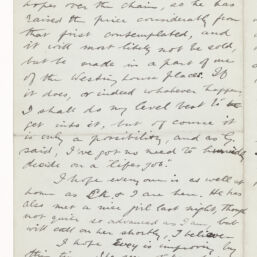 hopes over the chain, as he has
raised the price considerably from
that first contemplated, and
it will most likely not be sold,
but be made in a part of one
of the Westinghouse places. If
it does, or indeed whatever happens
I shall do my level best to
get into it, but of course it
is only a possibility, and as G,
said, I've got no need to
decide on a lifes job.
I hope everyone is as well at
home as & I are here. He has
also met a nice girl last night, though
not quite so advanced as I am but
will call on her shortly, I believe
I hope is improving by